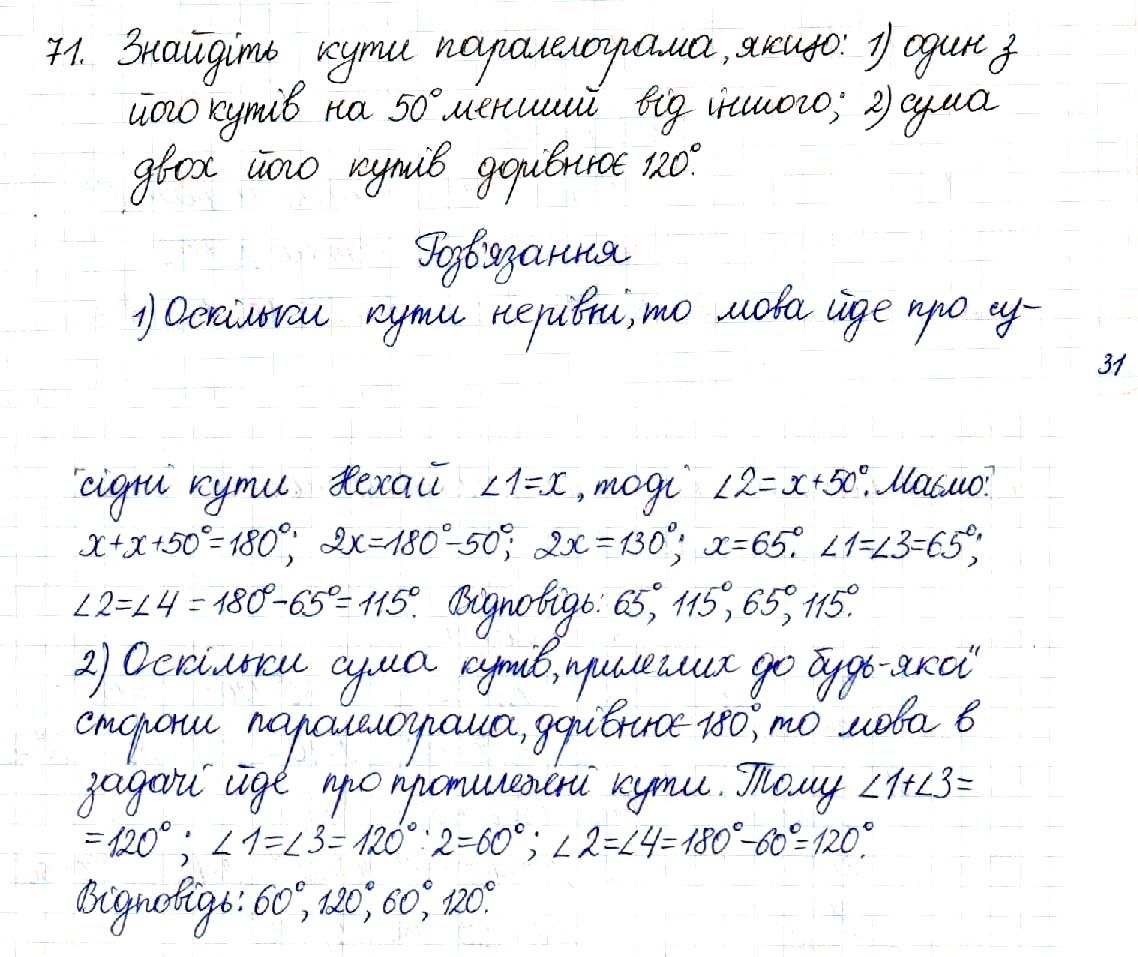 71. Знайдіть кути паралелограма, якщо: 1) один з
його кутів на 50° менший від іншого; 2) сума
двох його кутів дорівнює 120°.
Розв'язання
1) Оскільки кути нерівні, то мова йде про су-
31
сідні кути. Нехай ∠1=x, тоді ∠2=x+50°. Маємо:
x+x+50°=180°; 2x=180°-50°; 2x=130°; x=65°. ∠1=∠3=65°;
∠2=∠4=180°-65°=115°. Відповідь: 65°, 115°, 65°, 115°.
2) Оскільки сума кутів, прилеглих до будь-якої
сторони паралелограма, дорівнює 180°, то мова в
задачі йде про протилежні кути. Тому ∠1+∠3=
=120°; ∠1=∠3=120°:2=60°; ∠2=∠4=180°-60°=120°.
Відповідь: 60°, 120°, 60°, 120°.